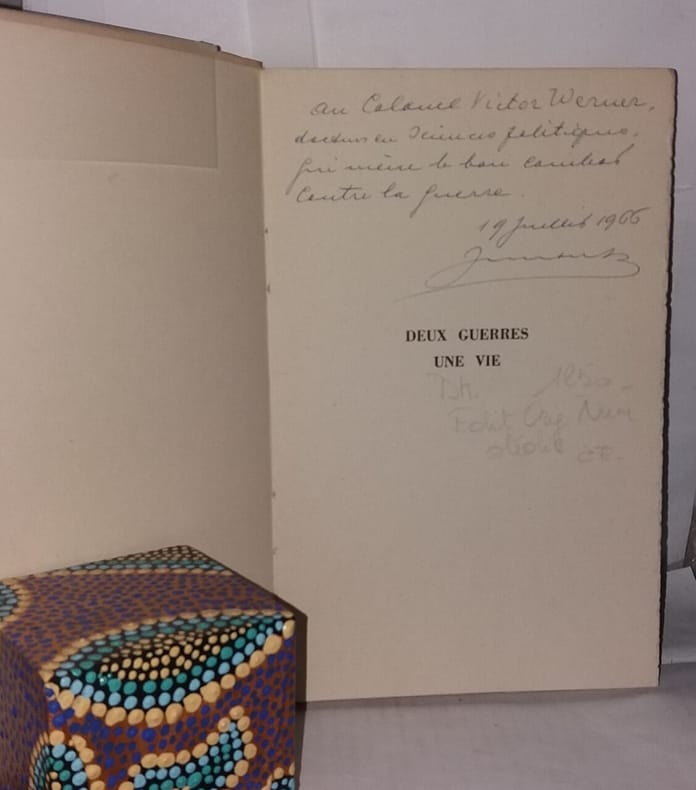 au Colonel Victor Werner,
docteur en Sciences politiques,
qui mène le bon combat
contre la guerre.
19 Juillet 1966
DEUX GUERRES
UNE VIE
Edit Orig Num